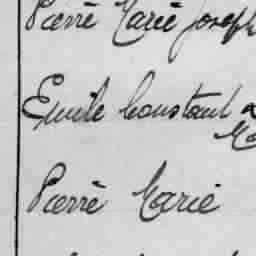 Pierre Marie Joseph
Emile Constant
Pierre Marie